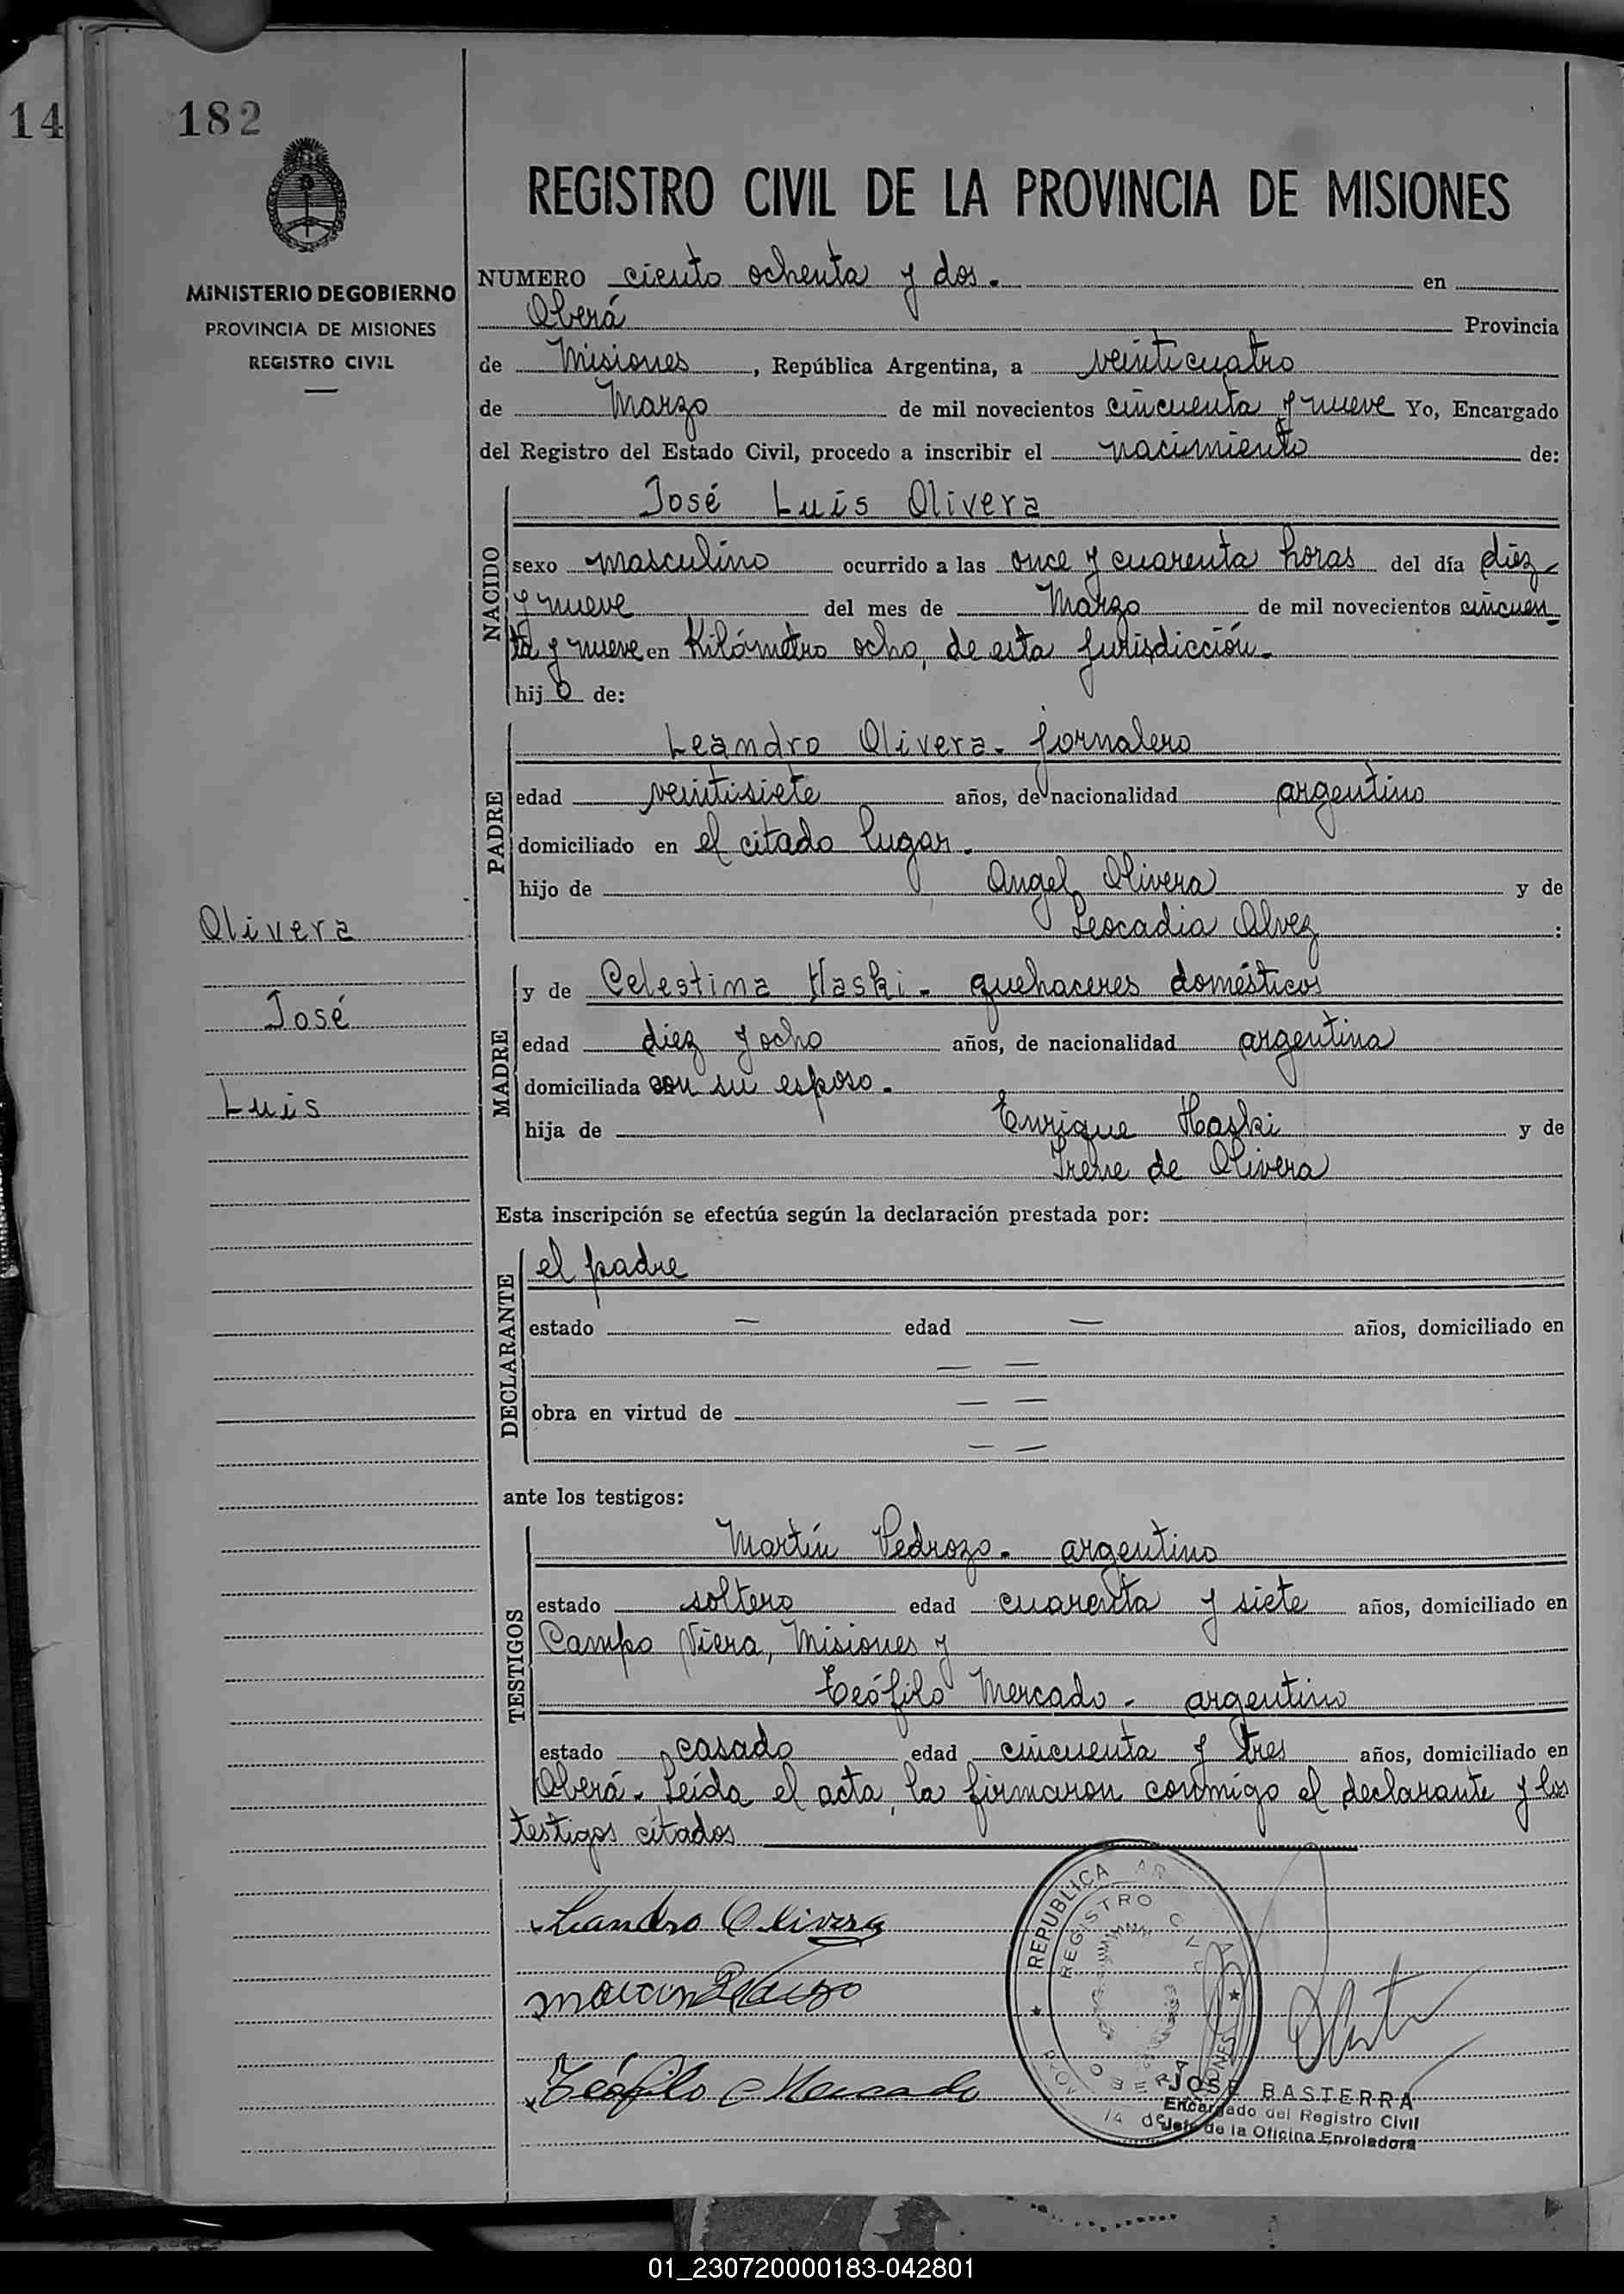 14
182
MINISTERIO DE GOBIERNO
PROVINCIA DE MISIONES
REGISTRO CIVIL
REGISTRO CIVIL DE LA PROVINCIA DE MISIONES
NUMERO ciento ochenta y dos. en
Oberá Provincia
de Misiones, República Argentina, a veinticuatro
de Marzo de mil novecientos cincuenta y nueve Yo, Encargado
del Registro del Estado Civil, procedo a inscribir el nacimiento de:
NACIDO
José Luis Olivera
sexo masculino ocurrido a las once y cuarenta horas del día diez
y nueve del mes de Marzo de mil novecientos cincuen
ta y nueve en Kilómetro ocho, de esta jurisdicción.
hijo de:
PADRE
Leandro Olivera. jornalero
edad veintisiete años, de nacionalidad argentino
domiciliado en el citado lugar.
hijo de Angel Olivera y de
Leocadia Alvez :
MADRE
y de Celestina Haski. quehaceres domésticos
edad diez y ocho años, de nacionalidad argentina
domiciliada con su esposo.
hija de Enrique Haski y de
Irene de Olivera
Olivera
José
Luis
Esta inscripción se efectúa según la declaración prestada por:
DECLARANTE
el padre
estado — edad — años, domiciliado en
— —
obra en virtud de — —
— —
ante los testigos:
TESTIGOS
Martín Pedrozo. argentino
estado soltero edad cuarenta y siete años, domiciliado en
Campo Viera, Misiones y
Teófilo Mercado - argentino
estado casado edad cincuenta y tres años, domiciliado en
Oberá. Leída el acta, la firmaron conmigo el declarante y los
testigos citados
Leandro Olivera
Teófilo Mercado
REPUBLICA AR
REGISTRO CIVIL
OBERA
JOSE BASTERRA
Encargado del Registro Civil
Jefe de la Oficina Enroladora
01_230720000183-042801